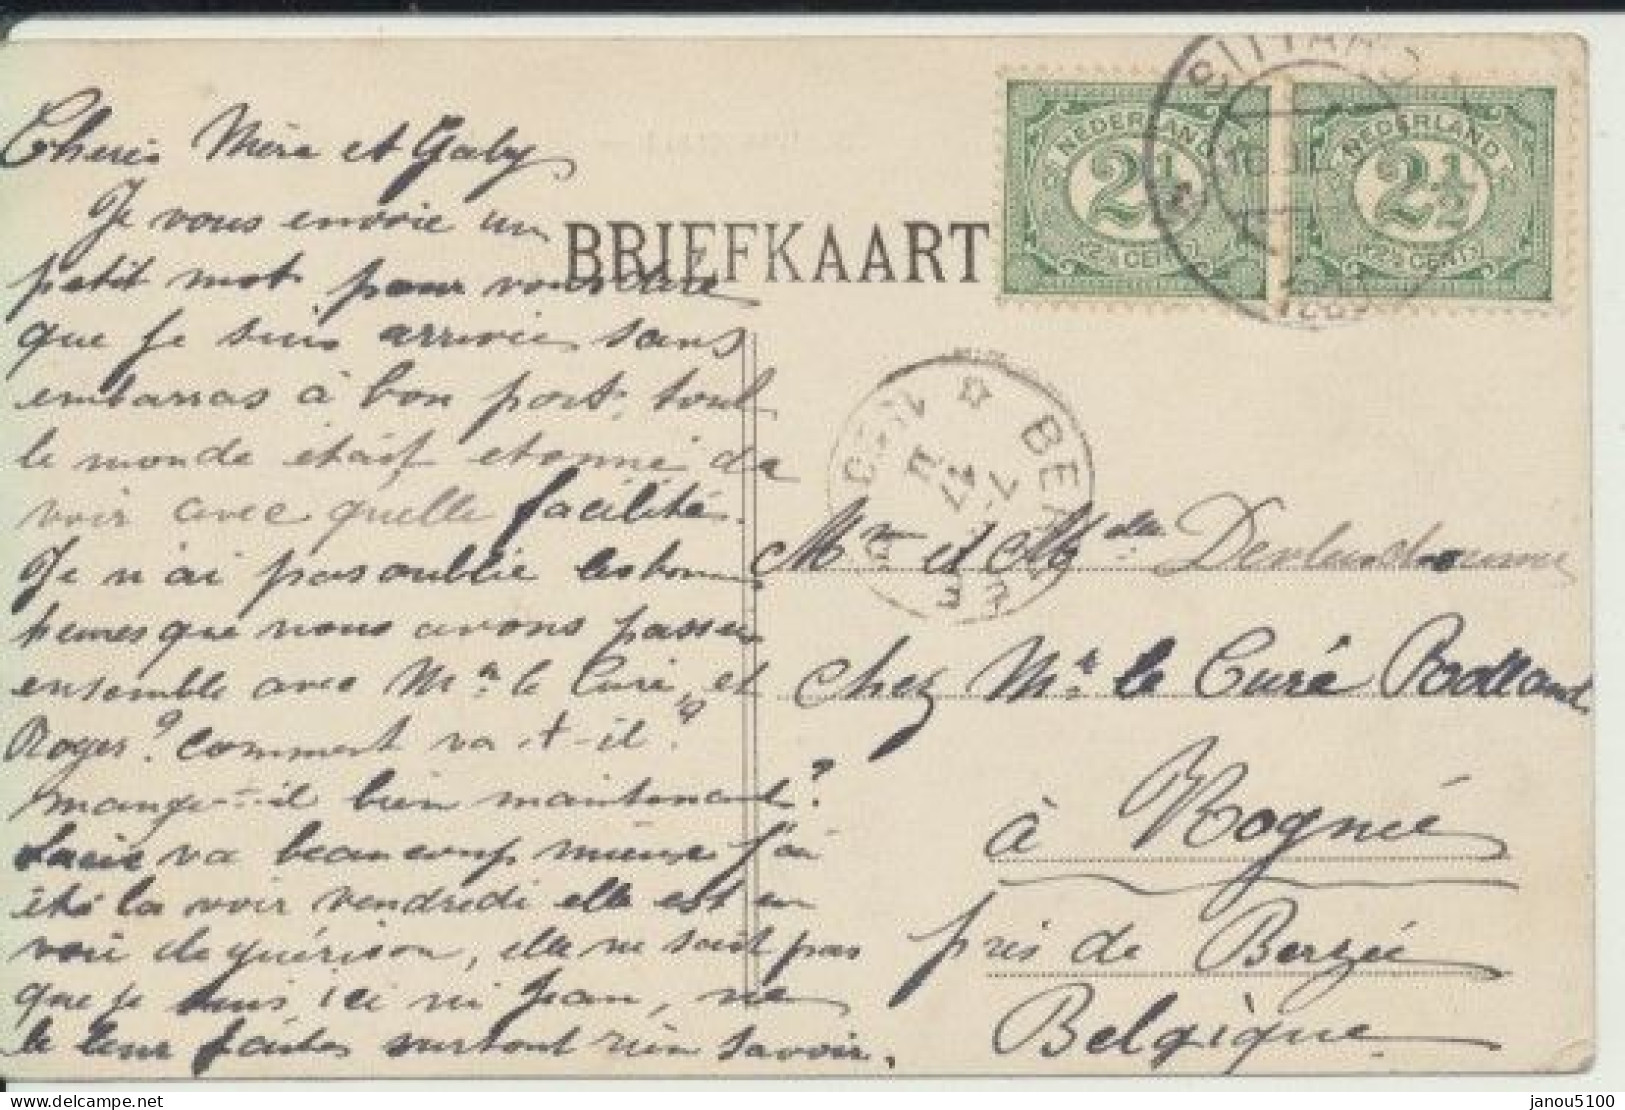 Cheris Mère et Gaby
Je vous envoie un
petit mot pour vous dire
que je suis arrivée sans
embarras à bon port, tout
le monde était etonné de
voir avec quelle facilités.
Je n'ai pas oublié les bonnes
heures que nous avons passer
ensemble avec Mr le Curé, et
Roger? comment va-t-il?
mange-t-il bien maintenant?
va beaucoup mieux j'ai
été la voir vendredi elle est en
voie de guérison, elle ne sait pas
que je suis ici ni Jean, ne
le leur faites surtout rien savoir.
BRIEFKAART
NEDERLAND
2½
2½ CENT
NEDERLAND
2½
2½ CENT
SITTARD
BERZEE
Mme et Mlle
Chez Mr le Curé Rolland
à Rognée
près de Berzée
Belgique
delcampe.net
janou5100